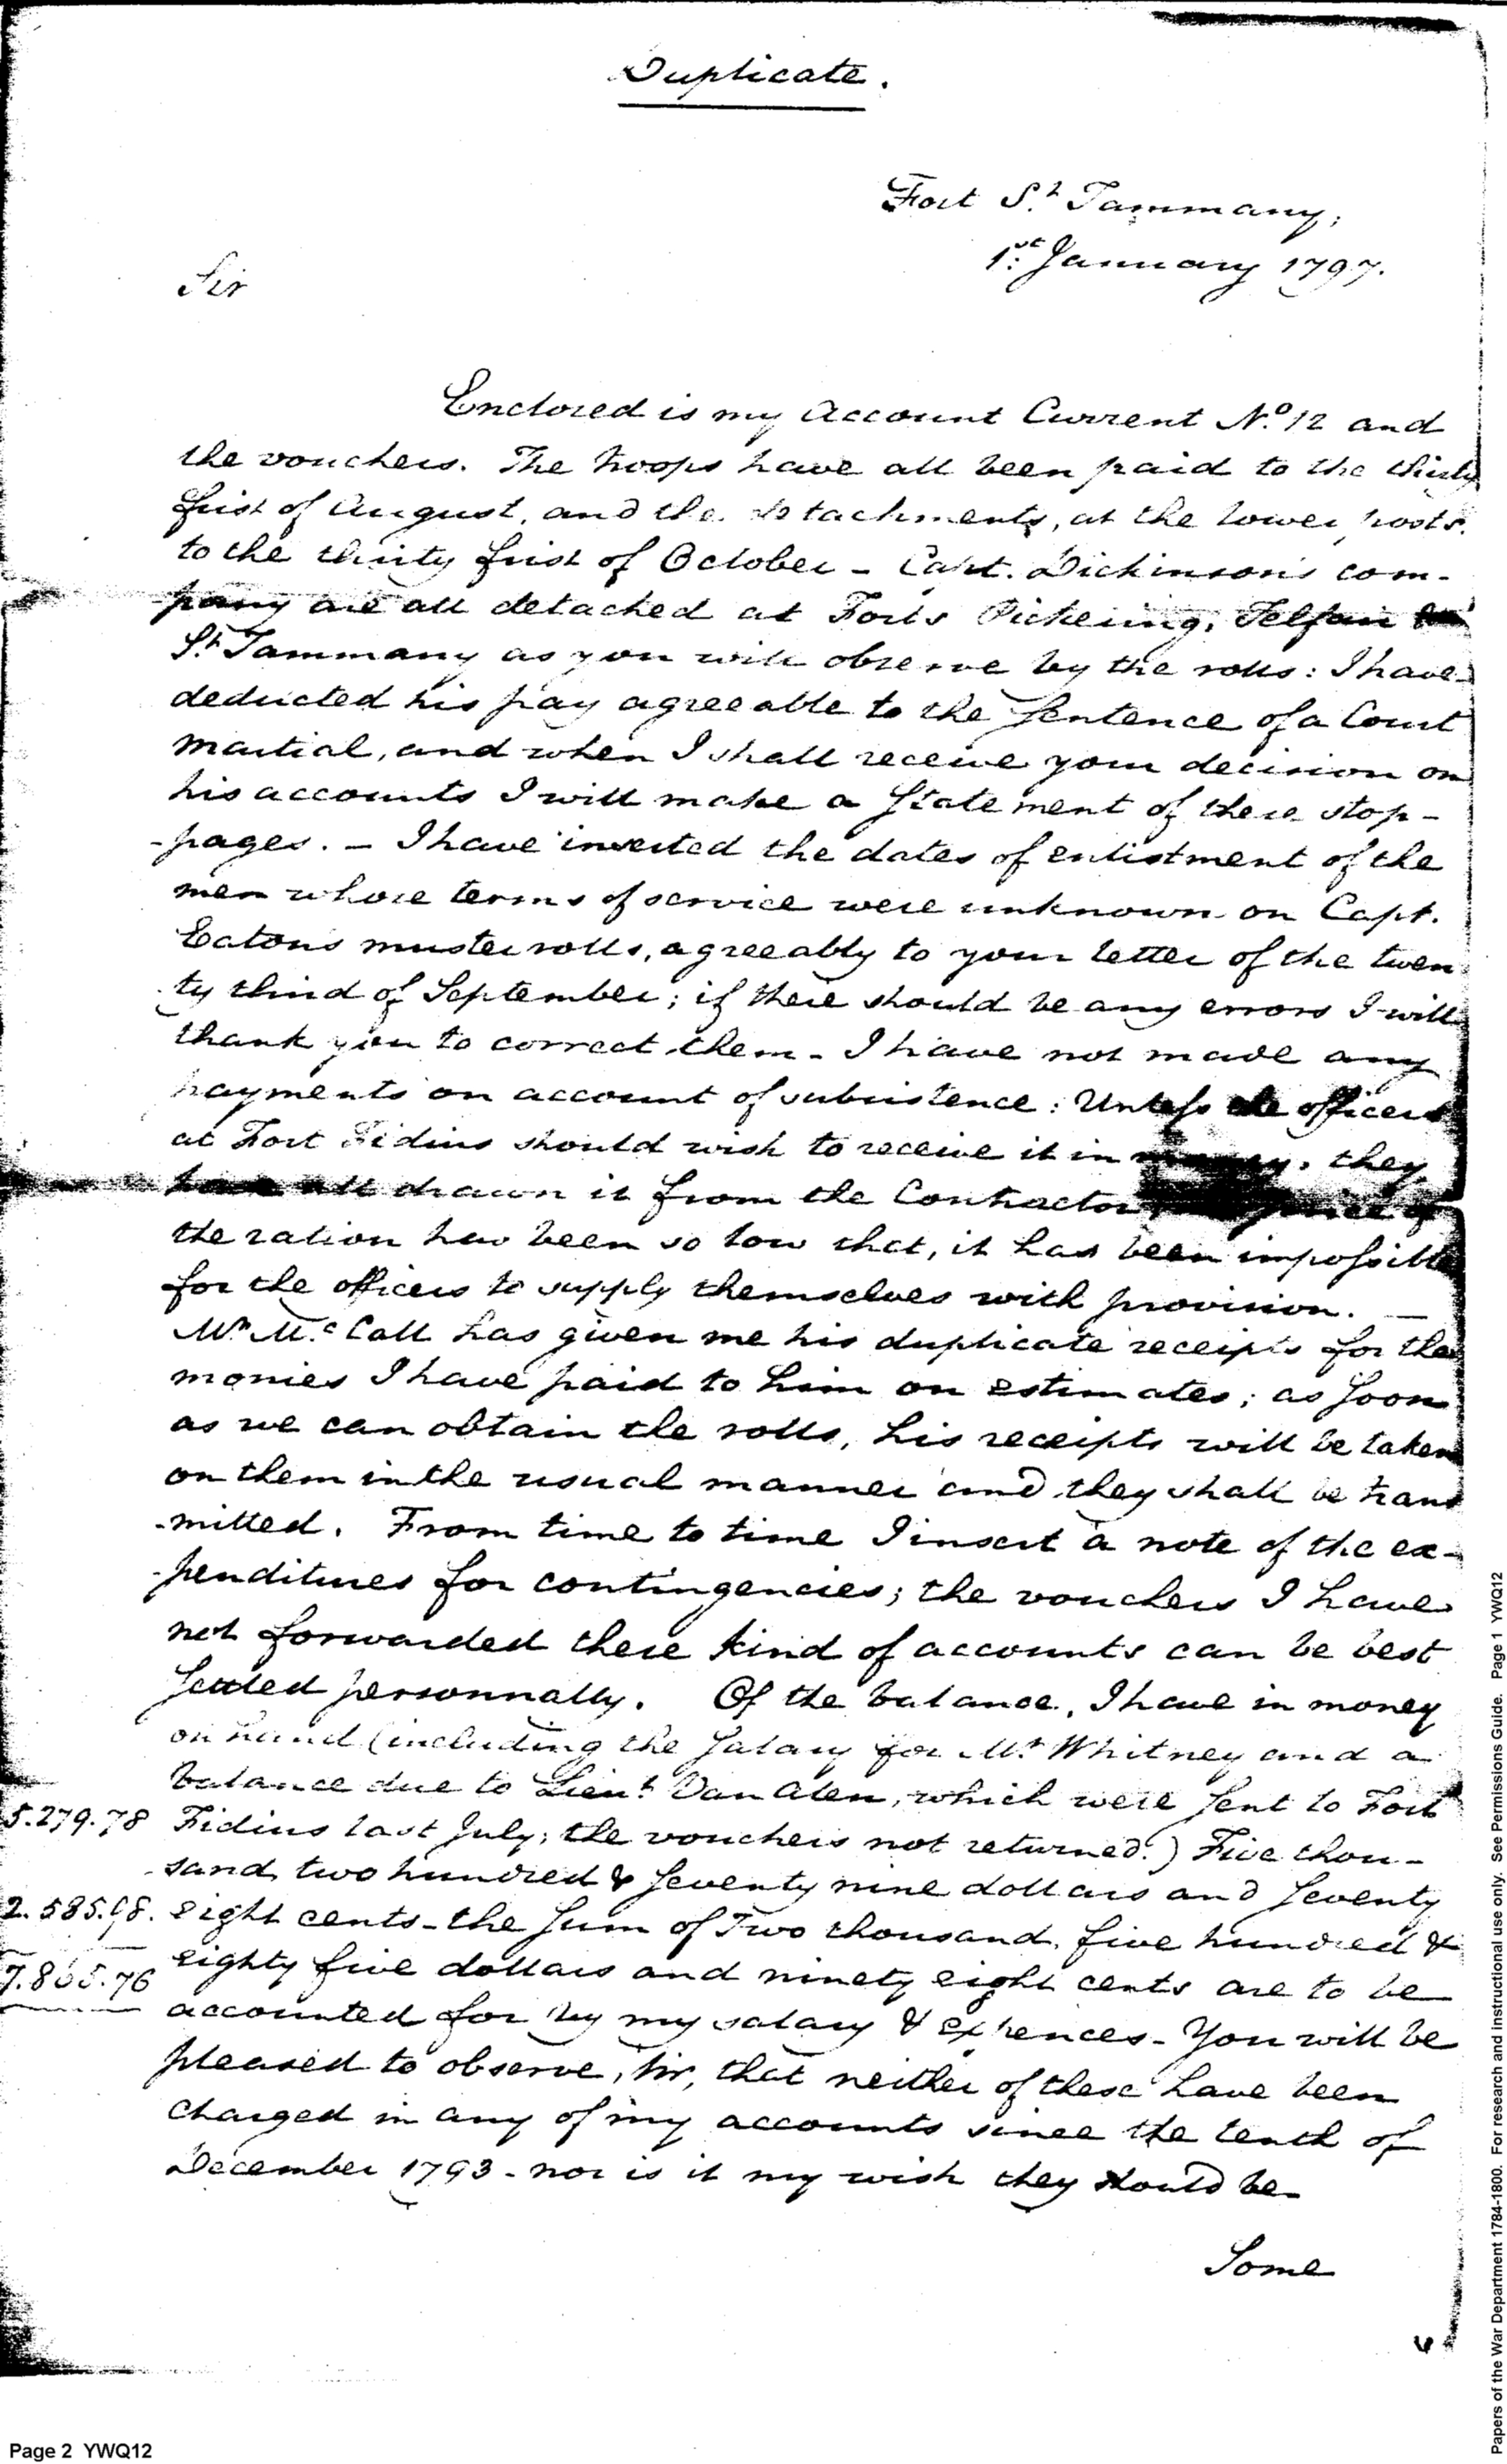 Duplicate.
Fort St. Tammany,
1st January 1797.
Sir
Enclosed is my Account Current No. 12 and
the vouchers. The troops have all been paid to the thirty
first of August, and the detachments, at the lower posts,
to the thirty first of October - Capt. Dickinson's com-
-pany are all detached at Forts Pickering, Telfair
St. Tammany as you will observe by the rolls: I have
deducted his pay agreeable to the Sentence of a Court
Martial, and when I shall receive your decision on
his accounts I will make a Statement of these stop-
-pages. - I have inserted the dates of enlistment of the
men whose terms of service were unknown on Capt.
Eatons muster rolls, agreeably to your letter of the twen
ty third of September; if there should be any errors I will
thank you to correct them - I have not made any
payments on account of subsistence: Unless the officers
at Fort Fidius should wish to receive it in money, they
have all drawn it from the Contractor price of
the ration has been so low that, it has been impossible
for the officers to supply themselves with provision. —
Mr. McCall has given me his duplicate receipts for the
monies I have paid to him on estimates; as soon
as we can obtain the rolls, his receipts will be taken
on them in the usual manner and they shall be trans
-mitted. From time to time I insert a note of the ex-
-penditures for contingencies; the vouchers I have
not forwarded these kind of accounts can be best
Settled personnally. Of the balance, I have in money
on hand (including the Salary for Mr. Whitney and a
balance due to Lieut. Van Alen, which were sent to Fort
5.279.78 Fidius last July; the vouchers not returned.) Five thou-
-sand, two hundred & Seventy nine dollars and Seventy
2.585.98. eight cents - the Sum of Two thousand, five hundred &
7.865.76 eighty five dollars and ninety eight cents are to be
accounted for by my salary & expences - You will be
pleased to observe, Sir, that neither of these have been
charged in any of my accounts since the tenth of
December 1793 - nor is it my wish they should be
Some
Page 2 YWQ12
Papers of the War Department 1784-1800. For research and instructional use only. See Permissions Guide. Page 1 YWQ12